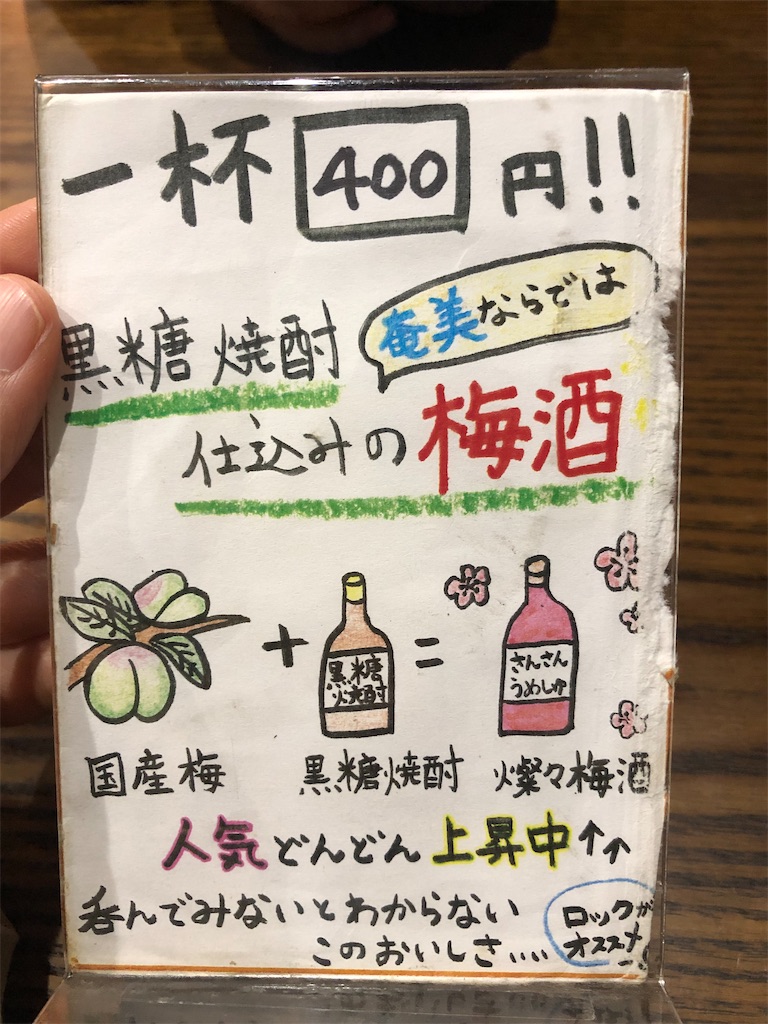 一杯 400 円!!
奄美ならでは
黒糖焼酎
仕込みの梅酒
+ =
黒糖
焼酎
さんさん
うめしゅ
国産梅 黒糖焼酎 燦々梅酒
人気どんどん上昇中↑↑
呑んでみないとわからない
このおいしさ....
ロックが
オススメ